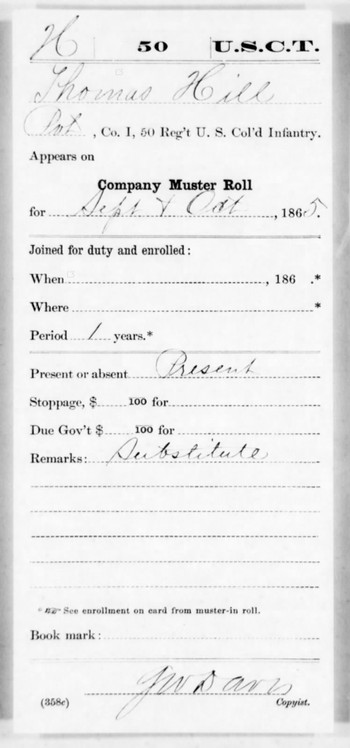 H 50 U.S.C.T.
Thomas Hill
Pvt, Co. I, 50 Reg't U. S. Col'd Infantry.
Appears on
Company Muster Roll
for Sept & Oct, 1865.
Joined for duty and enrolled:
When, 186 .*
Where *
Period 1 years.*
Present or absent Present
Stoppage, $ 100 for
Due Gov't $ 100 for
Remarks: Substitute
* See enrollment on card from muster-in roll.
Book mark:
JW Davis
(358c) Copyist.